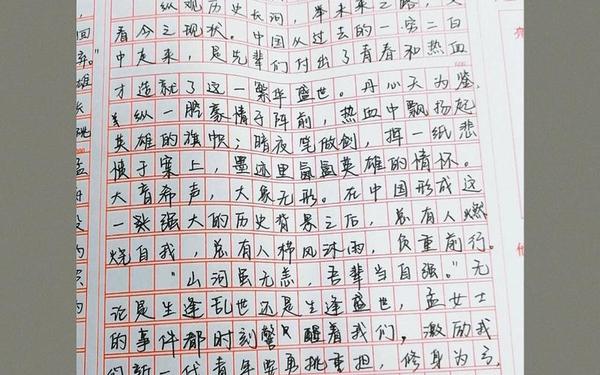 纵观历史长河，举未来之路，
看今之现状。中国从过去的一穷二白
中走来，是先辈们付出了青春和热血
才造就了这一繁华盛世。丹心天为鉴，
纵一腔豪情于阵前，热血中飘扬起
英雄的旗帜；暗夜笔做剑，挥一纸悲
愤于案上，墨迹里氤氲英雄的情怀。
大音希声，大象无形。在中国形成这
一张强大的历史背景之后，总有人燃
烧自我，总有人栉风沐雨，负重前行。
"山河虽无恙，吾辈当自强。"无
论是生逢乱世还是生逢盛世，孟女士
的事件都时刻警醒着我们。激励我
们新一代青年要勇挑重担，修身为弓，